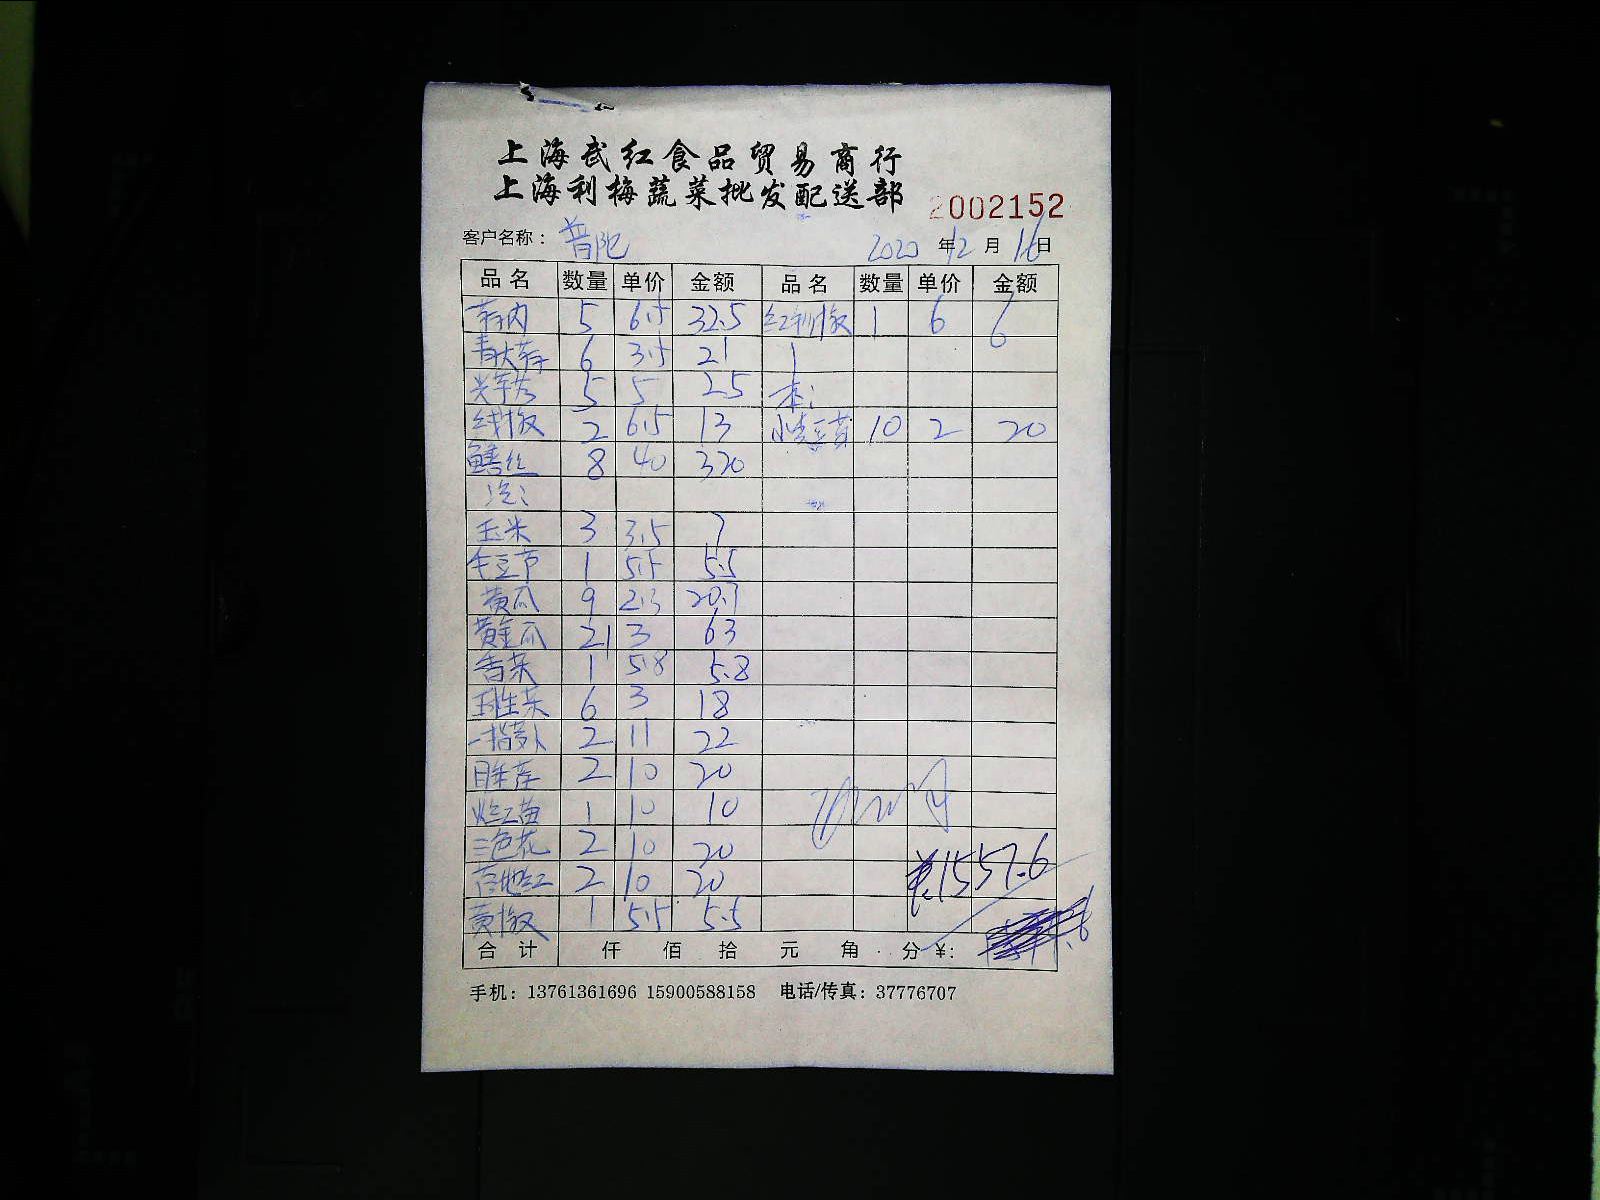 上海武红食品贸易商行
上海利梅蔬菜批发配送部
2002152
客户名称： 普陀 2020 年 12 月 16 日
品名 数量 单价 金额 品名 数量 单价 金额
5 6.5 32.5 1 6 6
6 3.5 21
5 5 25
线椒 2 6.5 13 10 2 20
鳝丝 8 40 320
玉米 3 3.5 7
毛豆节 1 5.5 5.5
黄瓜 9 2.3 20.7
黄金瓜 21 3 63
香菜 1 5.8 5.8
球生菜 6 3 18
2 11 22
2 10 20
1 10 10
三色花 2 10 20
2 10 20
黄椒 1 5.5 5.5
¥:1557.6
合计 仟 佰 拾 元 角 分 ¥:
手机：13761361696 15900588158 电话/传真：37776707